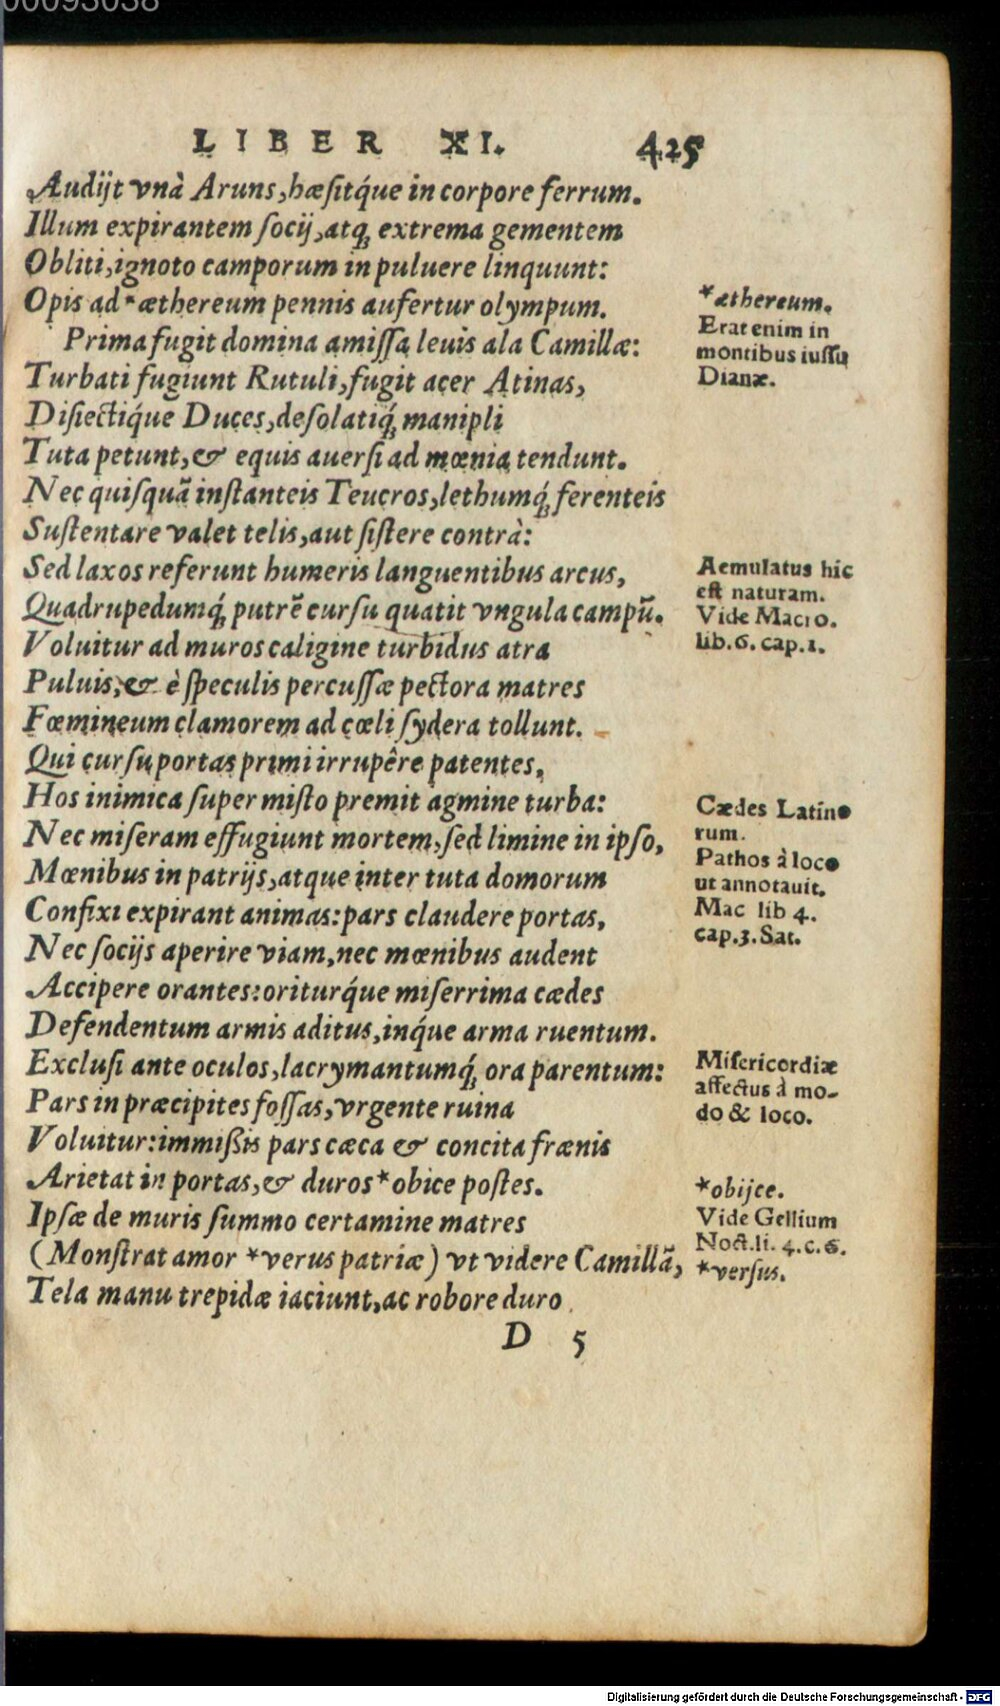 00093038
LIBER XI. 425
Audijt vnà Aruns, hæsitq́ue in corpore ferrum.
Illum expirantem socij, atq; extrema gementem
Obliti, ignoto camporum in puluere linquunt:
Opis ad *æthereum pennis aufertur olympum.
Prima fugit domina amissa leuis ala Camillæ:
Turbati fugiunt Rutuli, fugit acer Atinas,
Disiectiq́ue Duces, desolatiq́; manipli
Tuta petunt, & equis auersi ad mœnia tendunt.
Nec quisquã instanteis Teucros, lethumq́; ferenteis
Sustentare valet telis, aut sistere contrà:
Sed laxos referunt humeris languentibus arcus,
Quadrupedumq́; putrẽ cursu quatit vngula campũ.
Voluitur ad muros caligine turbidus atra
Puluis, & è speculis percussæ pectora matres
Fœmineum clamorem ad cœli sydera tollunt.
Qui cursu portas primi irrupêre patentes,
Hos inimica super misto premit agmine turba:
Nec miseram effugiunt mortem, sed limine in ipso,
Mœnibus in patrijs, atque inter tuta domorum
Confixi expirant animas: pars claudere portas,
Nec socijs aperire viam, nec mœnibus audent
Accipere orantes: oriturq́ue miserrima cædes
Defendentum armis aditus, inq́ue arma ruentum.
Exclusi ante oculos, lacrymantumq́; ora parentum:
Pars in præcipites fossas, vrgente ruina
Voluitur: immißis pars cæca & concita frænis
Arietat in portas, & duros *obice postes.
Ipsæ de muris summo certamine matres
(Monstrat amor *verus patriæ) vt videre Camillã,
Tela manu trepidæ iaciunt, ac robore duro
D 5
*æthereum.
Erat enim in
montibus iussu
Dianæ.
Aemulatus hic
est naturam.
Vide Macro.
lib. 6. cap. 1.
Cædes Latino
rum.
Pathos à loco
ut annotauit.
Mac lib 4.
cap. 3. Sat.
Misericordiæ
affectus à mo-
do & loco.
*obijce.
Vide Gellium
Noct. li. 4. c. 6.
*versus.
Digitalisierung gefördert durch die Deutsche Forschungsgemeinschaft - DFG